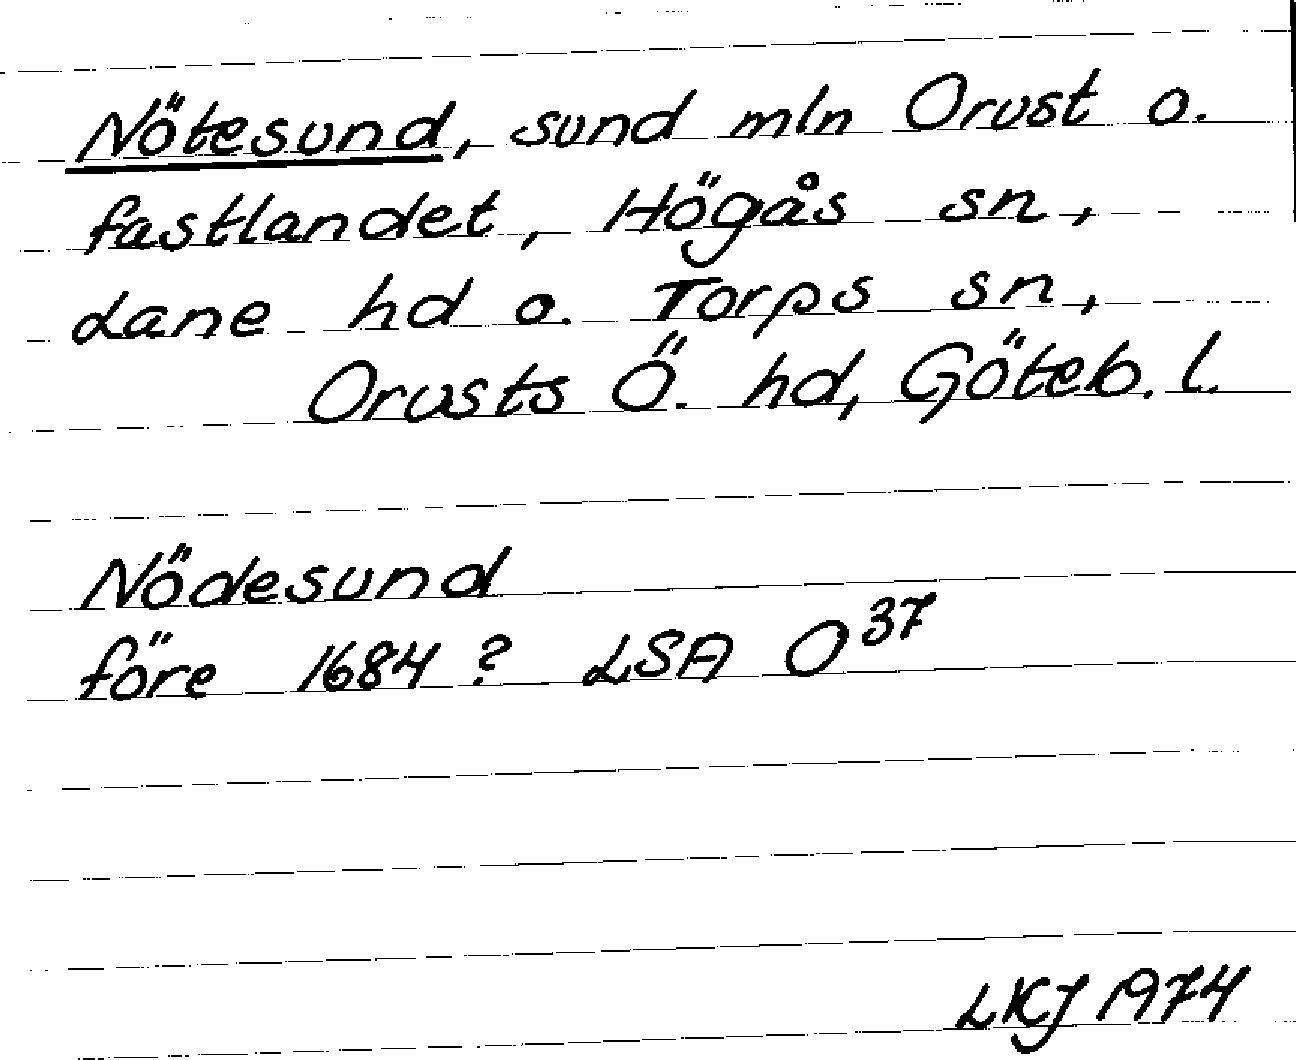 Nötesund, sund mln Orust o.
fastlandet, Högås sn,
Lane hd o. Torps sn,
Orusts Ö. hd, Göteb. l.
Nödesund
före 1684? LSA O³⁷
LKJ 1974